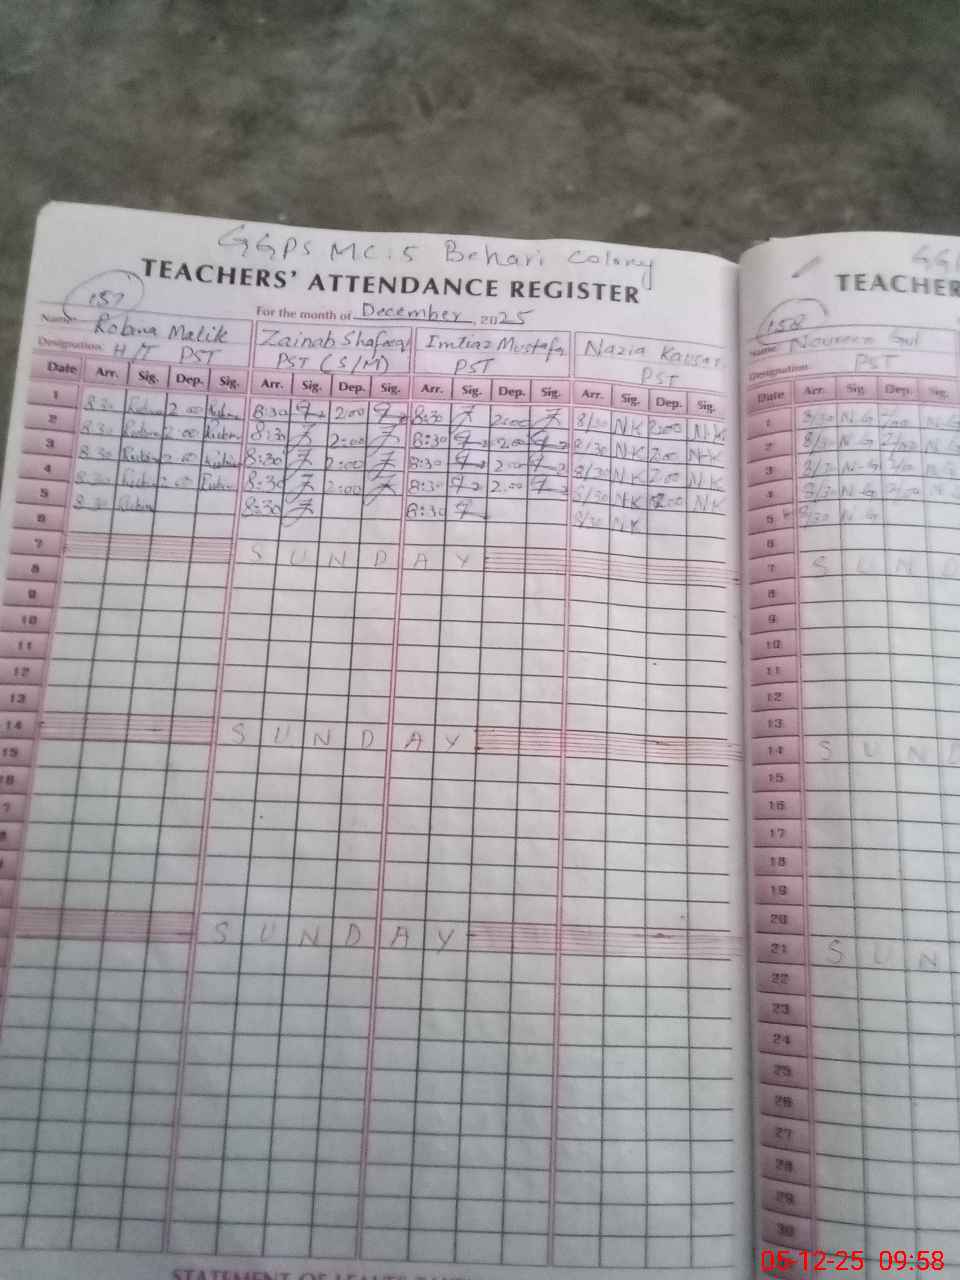 GGPS MC.5 Behari Colony
TEACHERS' ATTENDANCE REGISTER
157
For the month of December, 2025
Name Robina Malik Zainab Shafeeq Imtiaz Mustafa Nazia Kausar
Designation H/T PST PST (S/M) PST PST
Date Arr. Sig. Dep. Sig. Arr. Sig. Dep. Sig. Arr. Sig. Dep. Sig. Arr. Sig. Dep. Sig.
1 8:30 Robina 2:00 Robina 8:30 2:00 8:30 2:00 8/30 N.K 2:00 N.K
2 8:30 Robina 2:00 Robina 8:30 2:00 8:30 2:00 8/30 N.K 2:00 N.K
3 8:30 Robina 2:00 Robina 8:30 2:00 8:30 2:00 8/30 N.K 2:00 N.K
4 8:30 Robina 2:00 Robina 8:30 2:00 8:30 2:00 8/30 N.K 2:00 N.K
5 8:30 Robina 8:30 8:30 8/30 N.K
6
7 SUNDAY
8
9
10
11
12
13
14 SUNDAY
15
SUNDAY
STATEMENT OF LEAVE
GG
TEACHER
158
Name Noureen Gul
Designation PST
Date Arr. Sig. Dep. Sig.
1 8/30 N.G 2/00 N.G
2 8/30 N.G 2/00 N.G
3 8/30 N.G 2/00 N.G
4 8/30 N.G 2/00 N.G
5 8/30 N.G
6
7 SUND
8
9
10
11
12
13
14 SUND
15
16
17
18
19
20
21 SUN
22
23
24
25
26
27
28
29
30
05-12-25 09:58